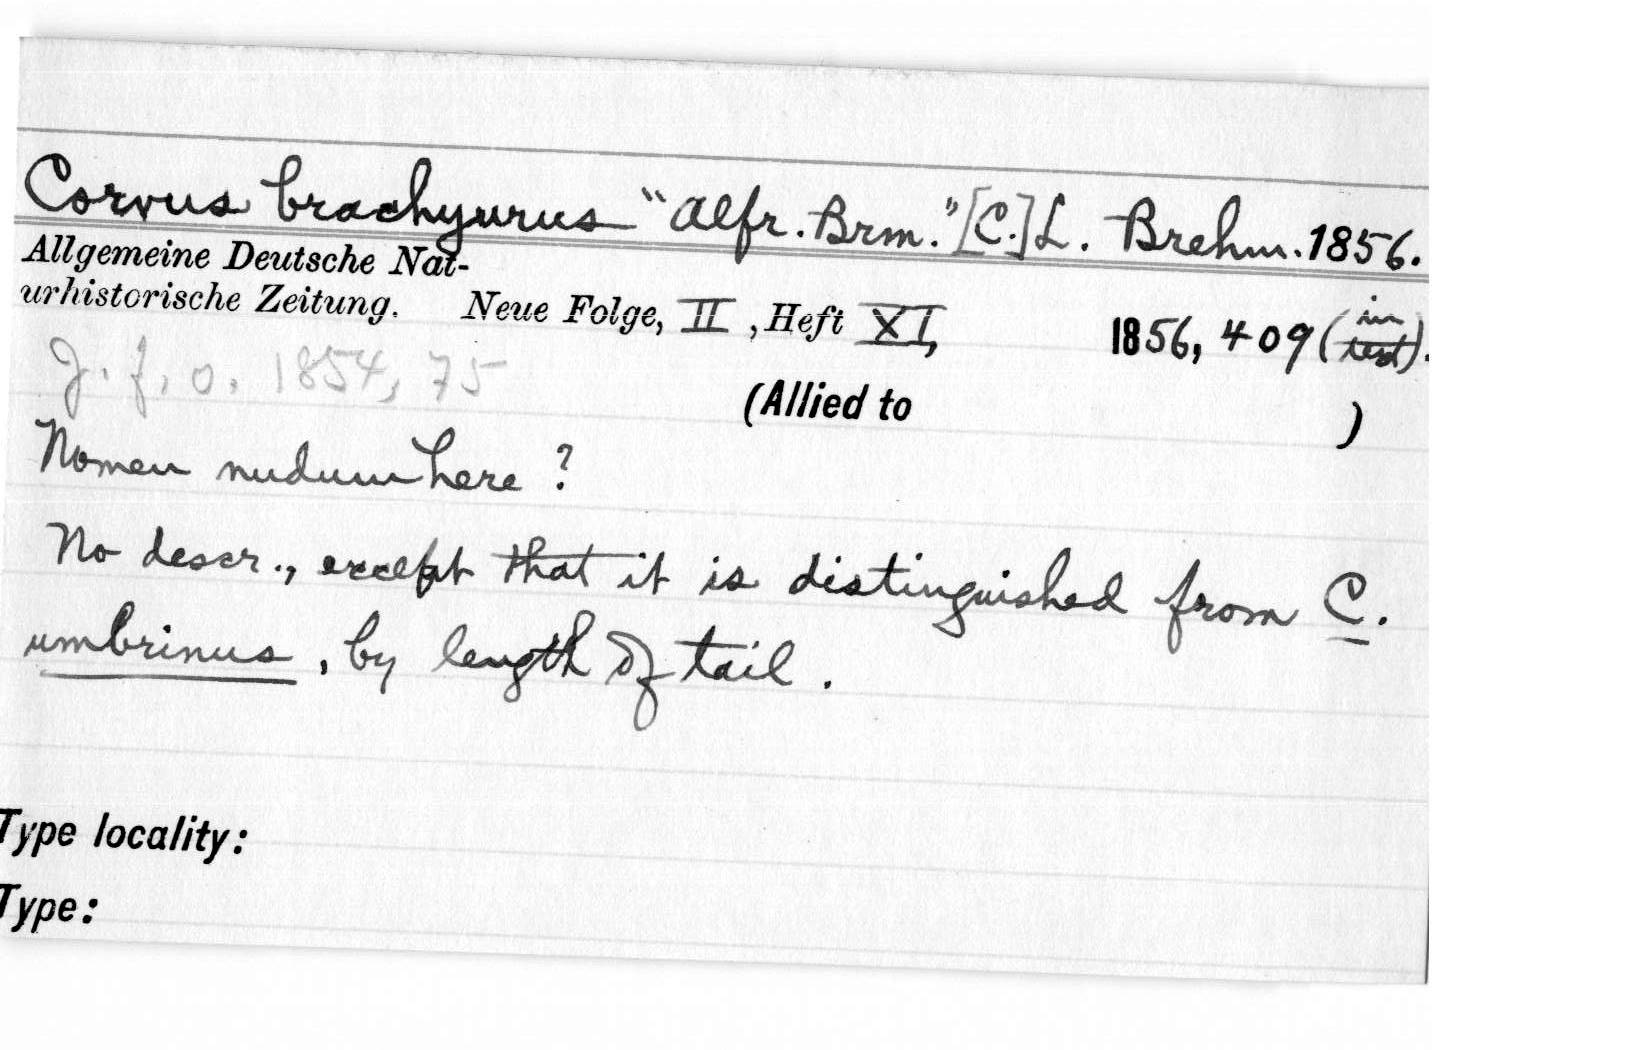 Corvus brachyurus "Alfr. Brm." [C.] L. Brehm. 1856.
Allgemeine Deutsche Nat-
urhistorische Zeitung. Neue Folge, II, Heft XI, 1856, 409 (in text).
J. f. O. 1854, 75
(Allied to )
Nomen nudum here ?
No descr., except that it is distinguished from C.
umbrinus, by length of tail.
Type locality:
Type: